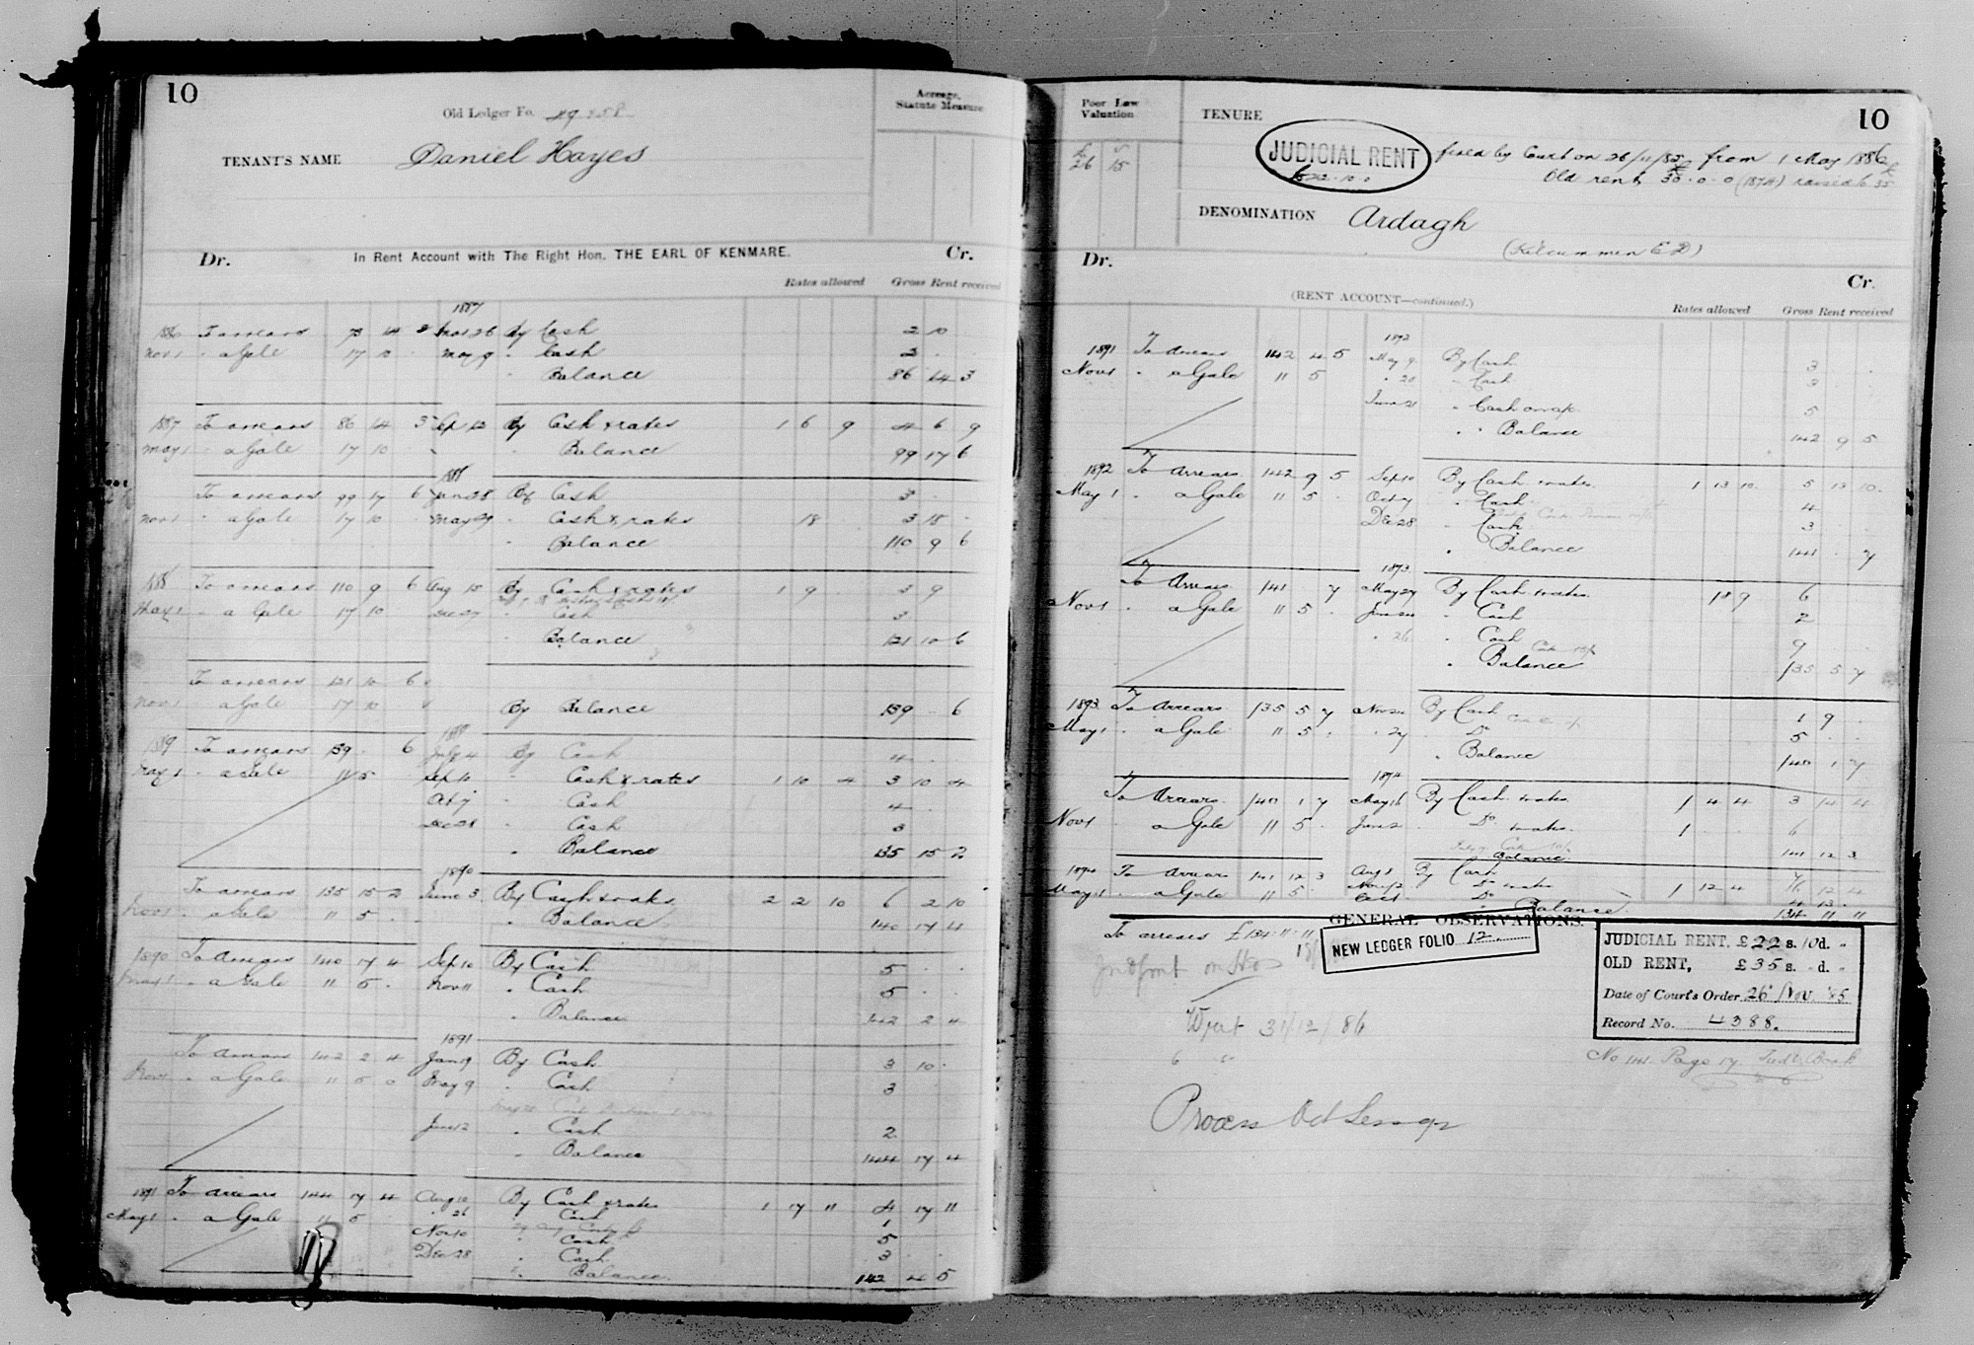 10
Old Ledger Fo. 49
Acreage, Statute Measure
TENANT'S NAME Daniel Hayes
Dr. In Rent Account with The Right Hon. THE EARL OF KENMARE. Cr.
Rates allowed Gross Rent received
1887
To arrears 73 14 3 Mar 26 By Cash 2 10
Nov 1 " a Gale 17 10 May 9 " Cash 2
" Balance 86 14 3
1887 To arrears 86 14 3 Sep 12 By Cash & rates 1 6 9 4 6 9
May 1 " a Gale 17 10 " Balance 99 17 6
1888
To arrears 99 17 6 Jan 28 By Cash 3
Nov 1 " a Gale 17 10 May 29 " Cash & rates 18 3 18
" Balance 110 9 6
1888 To arrears 110 9 6 Aug 15 By Cash & rates 1 9 3 9
May 1 " a Gale 17 10 Dec 27 " Cash 3
" Balance 121 10 6
To arrears 121 10 6
Nov 1 a Gale 17 10 By Balance 139 6
1889 To arrears 139 6 July 4 By Cash 4
May 1 " a Gale 11 5 Sep 10 " Cash & rates 1 10 4 3 10 4
Oct 7 " Cash 4
Dec 28 " Cash 3
" Balance 135 15 2
1890
To arrears 135 15 2 June 3 By Cash & rates 2 2 10 6 2 10
Nov 1 " a Gale 11 5 " Balance 140 17 4
1890 To Arrears 140 17 4 Sep 10 By Cash 5
May 1 " a Gale 11 5 Nov 11 " Cash 5
" Balance 142 2 4
1891
To Arrears 142 2 4 Jan 19 By Cash 3 10
Nov 1 " a Gale 11 5 0 May 9 " Cash 3
June 12 " Cash 2
" Balance 144 17 4
1891 To arrears 144 17 4 Aug 10 By Cash & rates 1 17 11 4 17 11
May 1 " a Gale 11 5 " 26 " Cash 1
Nov 10 " Cash 5
Dec 28 " Cash 3
" Balance 142 4 5
Poor Law Valuation
£ s
26 15
TENURE
10
JUDICIAL RENT fixed by Court on 26/11/85 from 1 May 1886
£22.10.0
Old rent £35.0.0 (1874) raised to 35
DENOMINATION Ardagh
(Kilcummen E D)
Dr. Cr.
(RENT ACCOUNT—continued.)
Rates allowed Gross Rent received
1892
1891 To Arrears 142 4 5 May 9 By Cash 3
Nov 1 " a Gale 11 5 " Cash 3
June 21 " Cash 5
" Balance 142 9 5
1892 To Arrears 142 9 5 Sep 10 By Cash & rates 1 13 10 5 13 10
May 1 " a Gale 11 5 Oct 7 " Cash 4
Dec 28 " Cash 3
" Balance 141 7
1893
To Arrears 141 7 May 27 By Cash & rates 18 9 6
Nov 1 " a Gale 11 5 June " Cash 2
" 26 " Cash 9
" Balance 135 5 7
1893 To Arrears 135 5 7 Nov By Cash 1 9
May 1 " a Gale 11 5 " 27 " Do 5
" Balance 140 1 7
1894
To Arrears 140 1 7 May 16 By Cash & rates 1 4 4 3 14 4
Nov 1 a Gale 11 5 June Do & rates 1 6
Balance 141 12 3
1894 To Arrears 141 12 3 Aug 1 By Cash
May 1 " a Gale 11 5 Nov 12 Do & rates 1 12 4 16 12 4
Do
Balance 134 11 11
GENERAL OBSERVATIONS.
To arrears £134.11.11
NEW LEDGER FOLIO 12
Writ 31/12/86
Process
JUDICIAL RENT, £22 s. 10 d. "
OLD RENT, £35 s. " d. "
Date of Court's Order 26 Nov. '85
Record No. 4388.
No 141 Page 17 Judl. Book